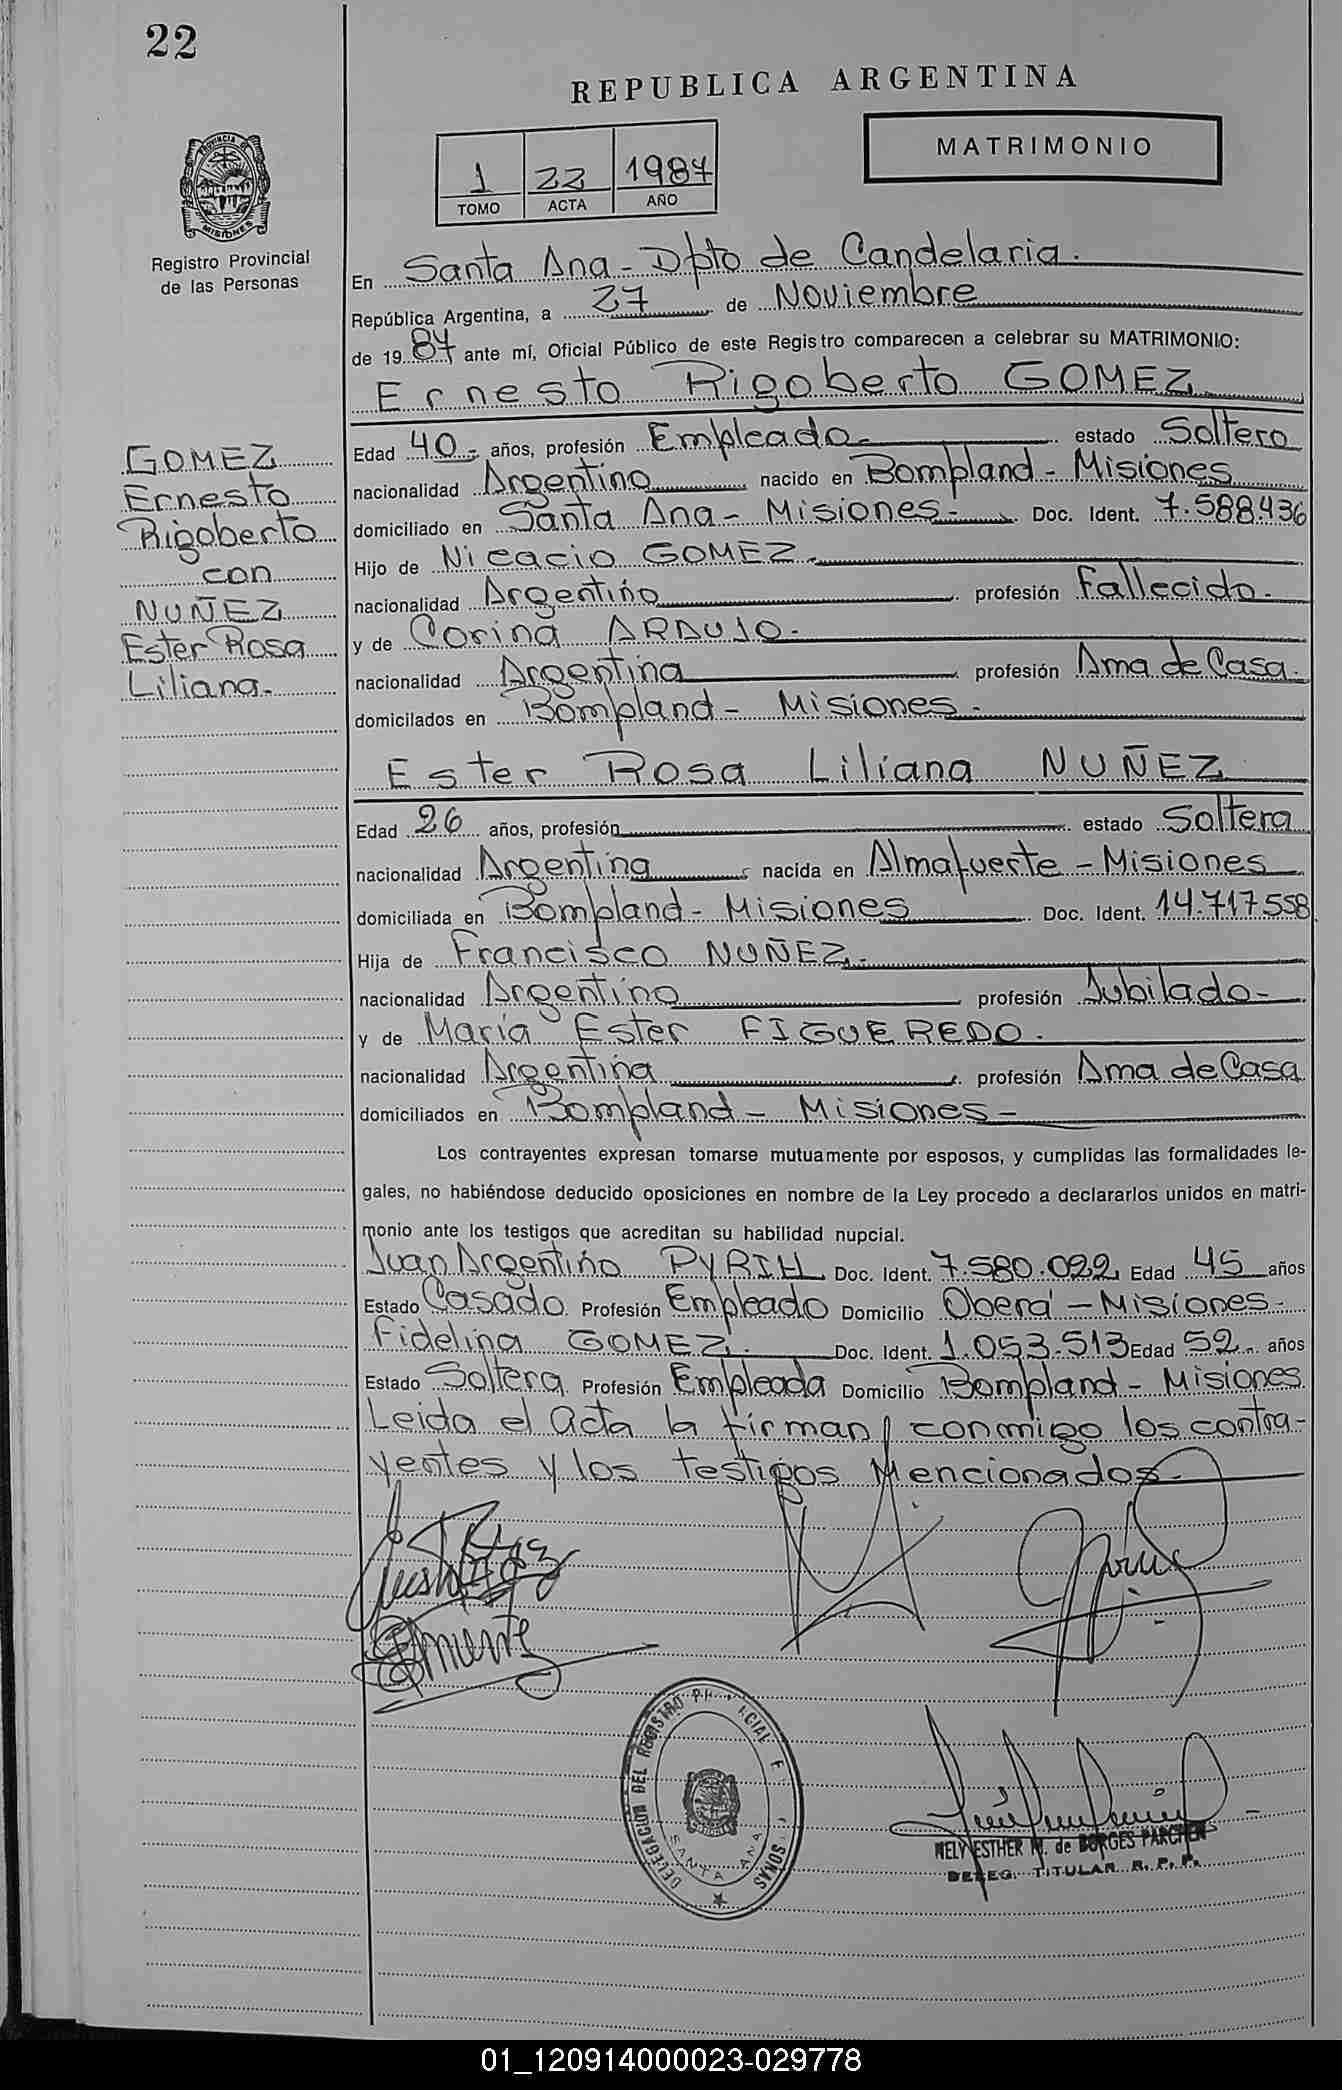 22
REPUBLICA ARGENTINA
MATRIMONIO
1 22 1987
TOMO ACTA AÑO
PROVINCIA DE
MISIONES
Registro Provincial
de las Personas
En Santa Ana - Dpto de Candelaria.
República Argentina, a 27 de Noviembre
de 1987 ante mí, Oficial Público de este Registro comparecen a celebrar su MATRIMONIO:
Ernesto Rigoberto GOMEZ
GOMEZ
Ernesto
Rigoberto
con
NUÑEZ
Ester Rosa
Liliana.
Edad 40 - años, profesión Empleado. estado Soltero
nacionalidad Argentino nacido en Bompland - Misiones
domiciliado en Santa Ana - Misiones - Doc. Ident. 7.588.436
Hijo de Nicacio GOMEZ.
nacionalidad Argentino profesión Fallecido.
y de Corina ARAUJO.
nacionalidad Argentina profesión Ama de Casa.
domicilados en Bompland - Misiones -
Ester Rosa Liliana NUÑEZ
Edad 26 años, profesión estado Soltera
nacionalidad Argentina nacida en Almafuerte - Misiones
domiciliada en Bompland - Misiones Doc. Ident. 14.717.558
Hija de Francisco NUÑEZ.
nacionalidad Argentino profesión Jubilado -
y de María Ester FIGUEREDO.
nacionalidad Argentina profesión Ama de Casa
domiciliados en Bompland - Misiones -
Los contrayentes expresan tomarse mutuamente por esposos, y cumplidas las formalidades le-
gales, no habiéndose deducido oposiciones en nombre de la Ley procedo a declararlos unidos en matri-
monio ante los testigos que acreditan su habilidad nupcial.
Juan Argentino PYRIH Doc. Ident. 7.580.022 Edad 45 años
Estado Casado. Profesión Empleado Domicilio Oberá - Misiones -
Fidelina GOMEZ. Doc. Ident. 1.053.513 Edad 52 años
Estado Soltera Profesión Empleada Domicilio Bompland - Misiones
Leida el acta la firman conmigo los contra-
yentes y los testigos Mencionados -
DELEGACION DEL REGISTRO
SANTA ANA
NELY ESTHER M. de BORGES PARCHEN
DELEG. TITULAR R. P. P.
01_120914000023-029778